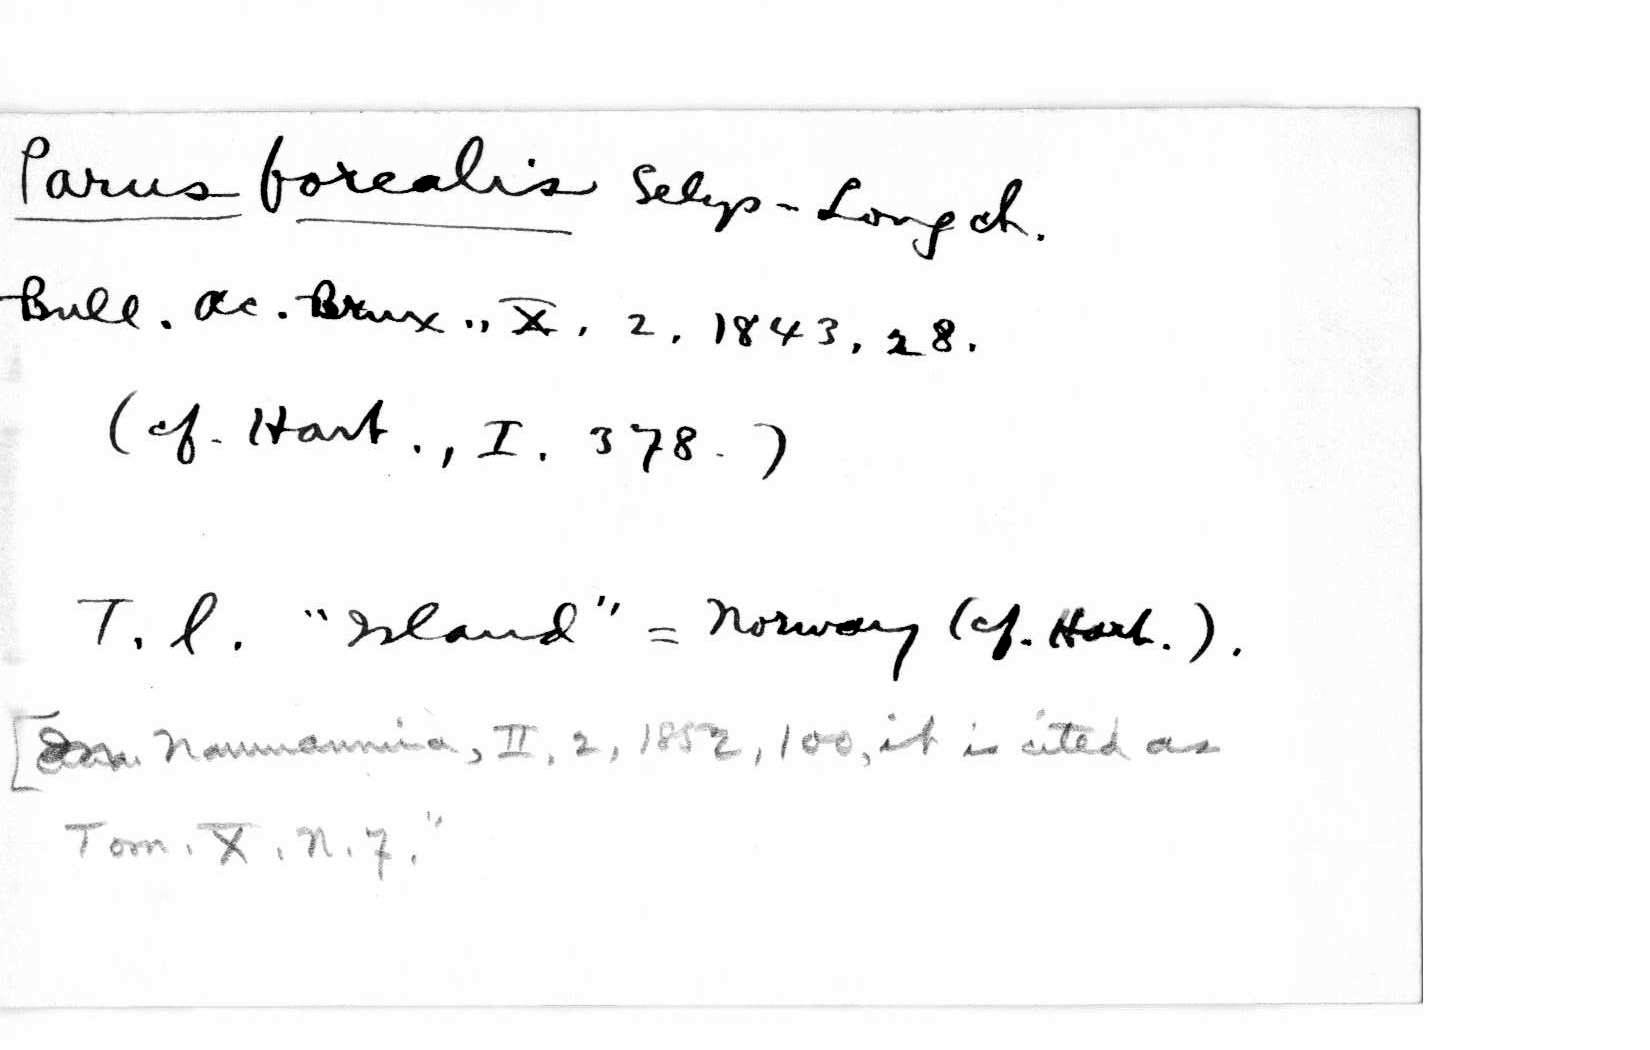 Parus borealis Selys-Longch.
Bull. Ac. Brux., X, 2, 1843, 28.
(cf. Hart., I. 378.)
T. l. "Island" = Norway (cf. Hart.).
[In Naumannia, II, 2, 1852, 100, it is cited as
Tom. X. N. 7."